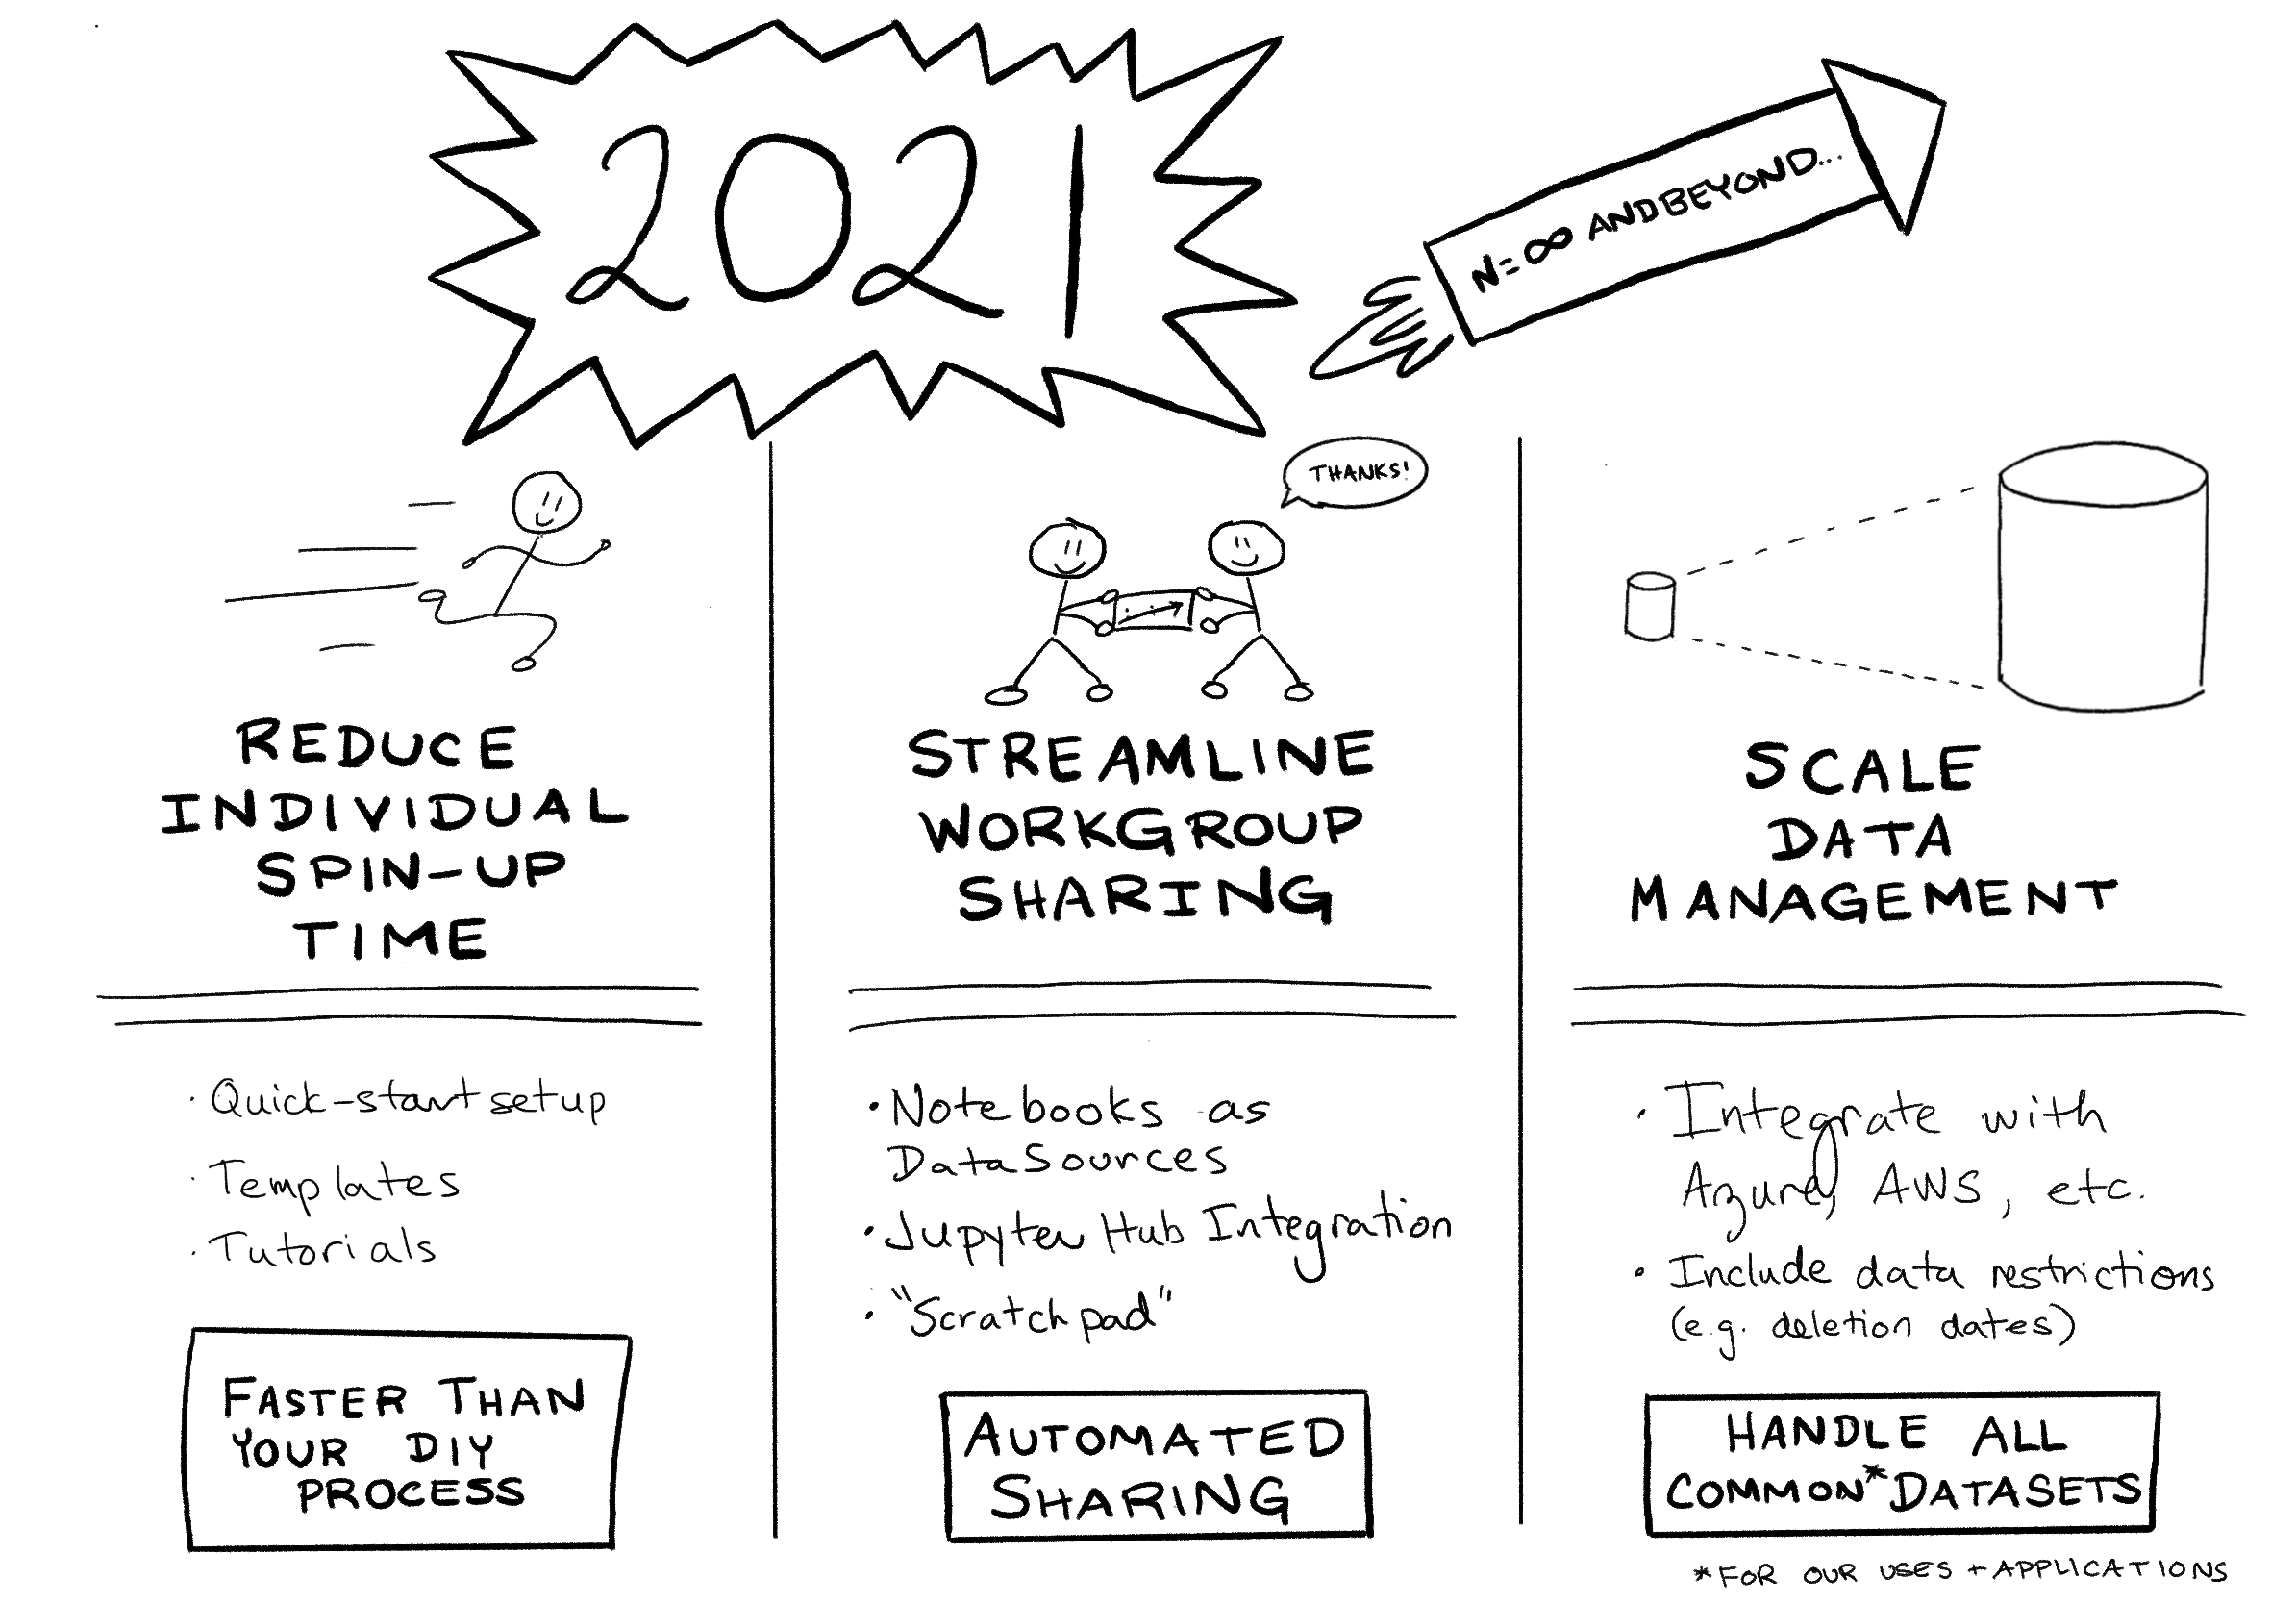 2021
N=∞ AND BEYOND...
THANKS!
REDUCE
INDIVIDUAL
SPIN-UP
TIME
· Quick-start setup
· Templates
· Tutorials
FASTER THAN
YOUR DIY
PROCESS
STREAMLINE
WORKGROUP
SHARING
• Notebooks as
DataSources
• Jupyter Hub Integration
• "Scratchpad"
AUTOMATED
SHARING
SCALE
DATA
MANAGEMENT
• Integrate with
Azure, AWS, etc.
• Include data restrictions
(e.g. deletion dates)
HANDLE ALL
COMMON* DATASETS
*FOR OUR USES + APPLICATIONS